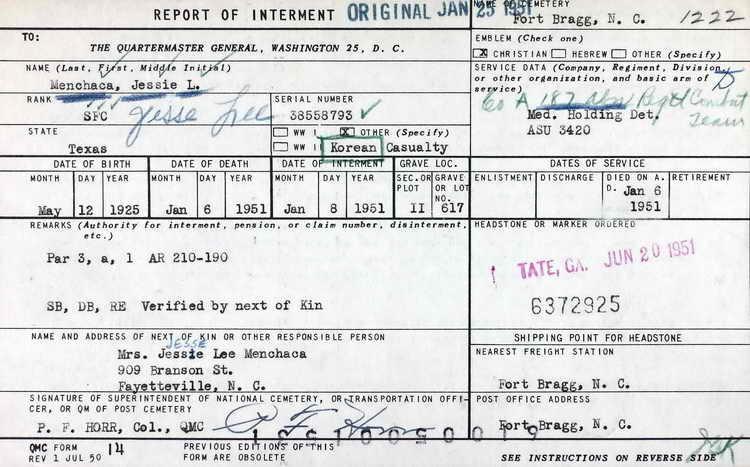 REPORT OF INTERMENT
ORIGINAL JAN 25 1951
NAME OF CEMETERY
Fort Bragg, N. C. 1222
TO:
THE QUARTERMASTER GENERAL, WASHINGTON 25, D. C.
EMBLEM (Check one)
X CHRISTIAN HEBREW OTHER (Specify)
NAME (Last, First, Middle Initial)
Menchaca, Jessie L.
SERVICE DATA (Company, Regiment, Division, or other organization, and basic arm of service)
Co A 187 Regt Combat Team
Med. Holding Det.
ASU 3420
RANK
SFC
Jesse Lee
SERIAL NUMBER
38558793
STATE
Texas
WW I X OTHER (Specify)
WW II Korean Casualty
DATE OF BIRTH
MONTH DAY YEAR
May 12 1925
DATE OF DEATH
MONTH DAY YEAR
Jan 6 1951
DATE OF INTERMENT
MONTH DAY YEAR
Jan 8 1951
GRAVE LOC.
SEC. OR PLOT
II
GRAVE OR LOT NO.
617
DATES OF SERVICE
ENLISTMENT DISCHARGE DIED ON A. D. RETIREMENT
Jan 6
1951
REMARKS (Authority for interment, pension, or claim number, disinterment, etc.)
Par 3, a, 1 AR 210-190
SB, DB, RE Verified by next of Kin
HEADSTONE OR MARKER ORDERED
TATE, GA. JUN 20 1951
6372925
NAME AND ADDRESS OF NEXT OF KIN OR OTHER RESPONSIBLE PERSON
JESSE
Mrs. Jessie Lee Menchaca
909 Branson St.
Fayetteville, N. C.
SHIPPING POINT FOR HEADSTONE
NEAREST FREIGHT STATION
Fort Bragg, N. C.
SIGNATURE OF SUPERINTENDENT OF NATIONAL CEMETERY, OR TRANSPORTATION OFFI-
CER, OR QM OF POST CEMETERY
P. F. HORR, Col., QMC P F Horr
POST OFFICE ADDRESS
Fort Bragg, N. C.
QMC FORM 14
REV 1 JUL 50
PREVIOUS EDITIONS OF THIS
FORM ARE OBSOLETE
SEE INSTRUCTIONS ON REVERSE SIDE